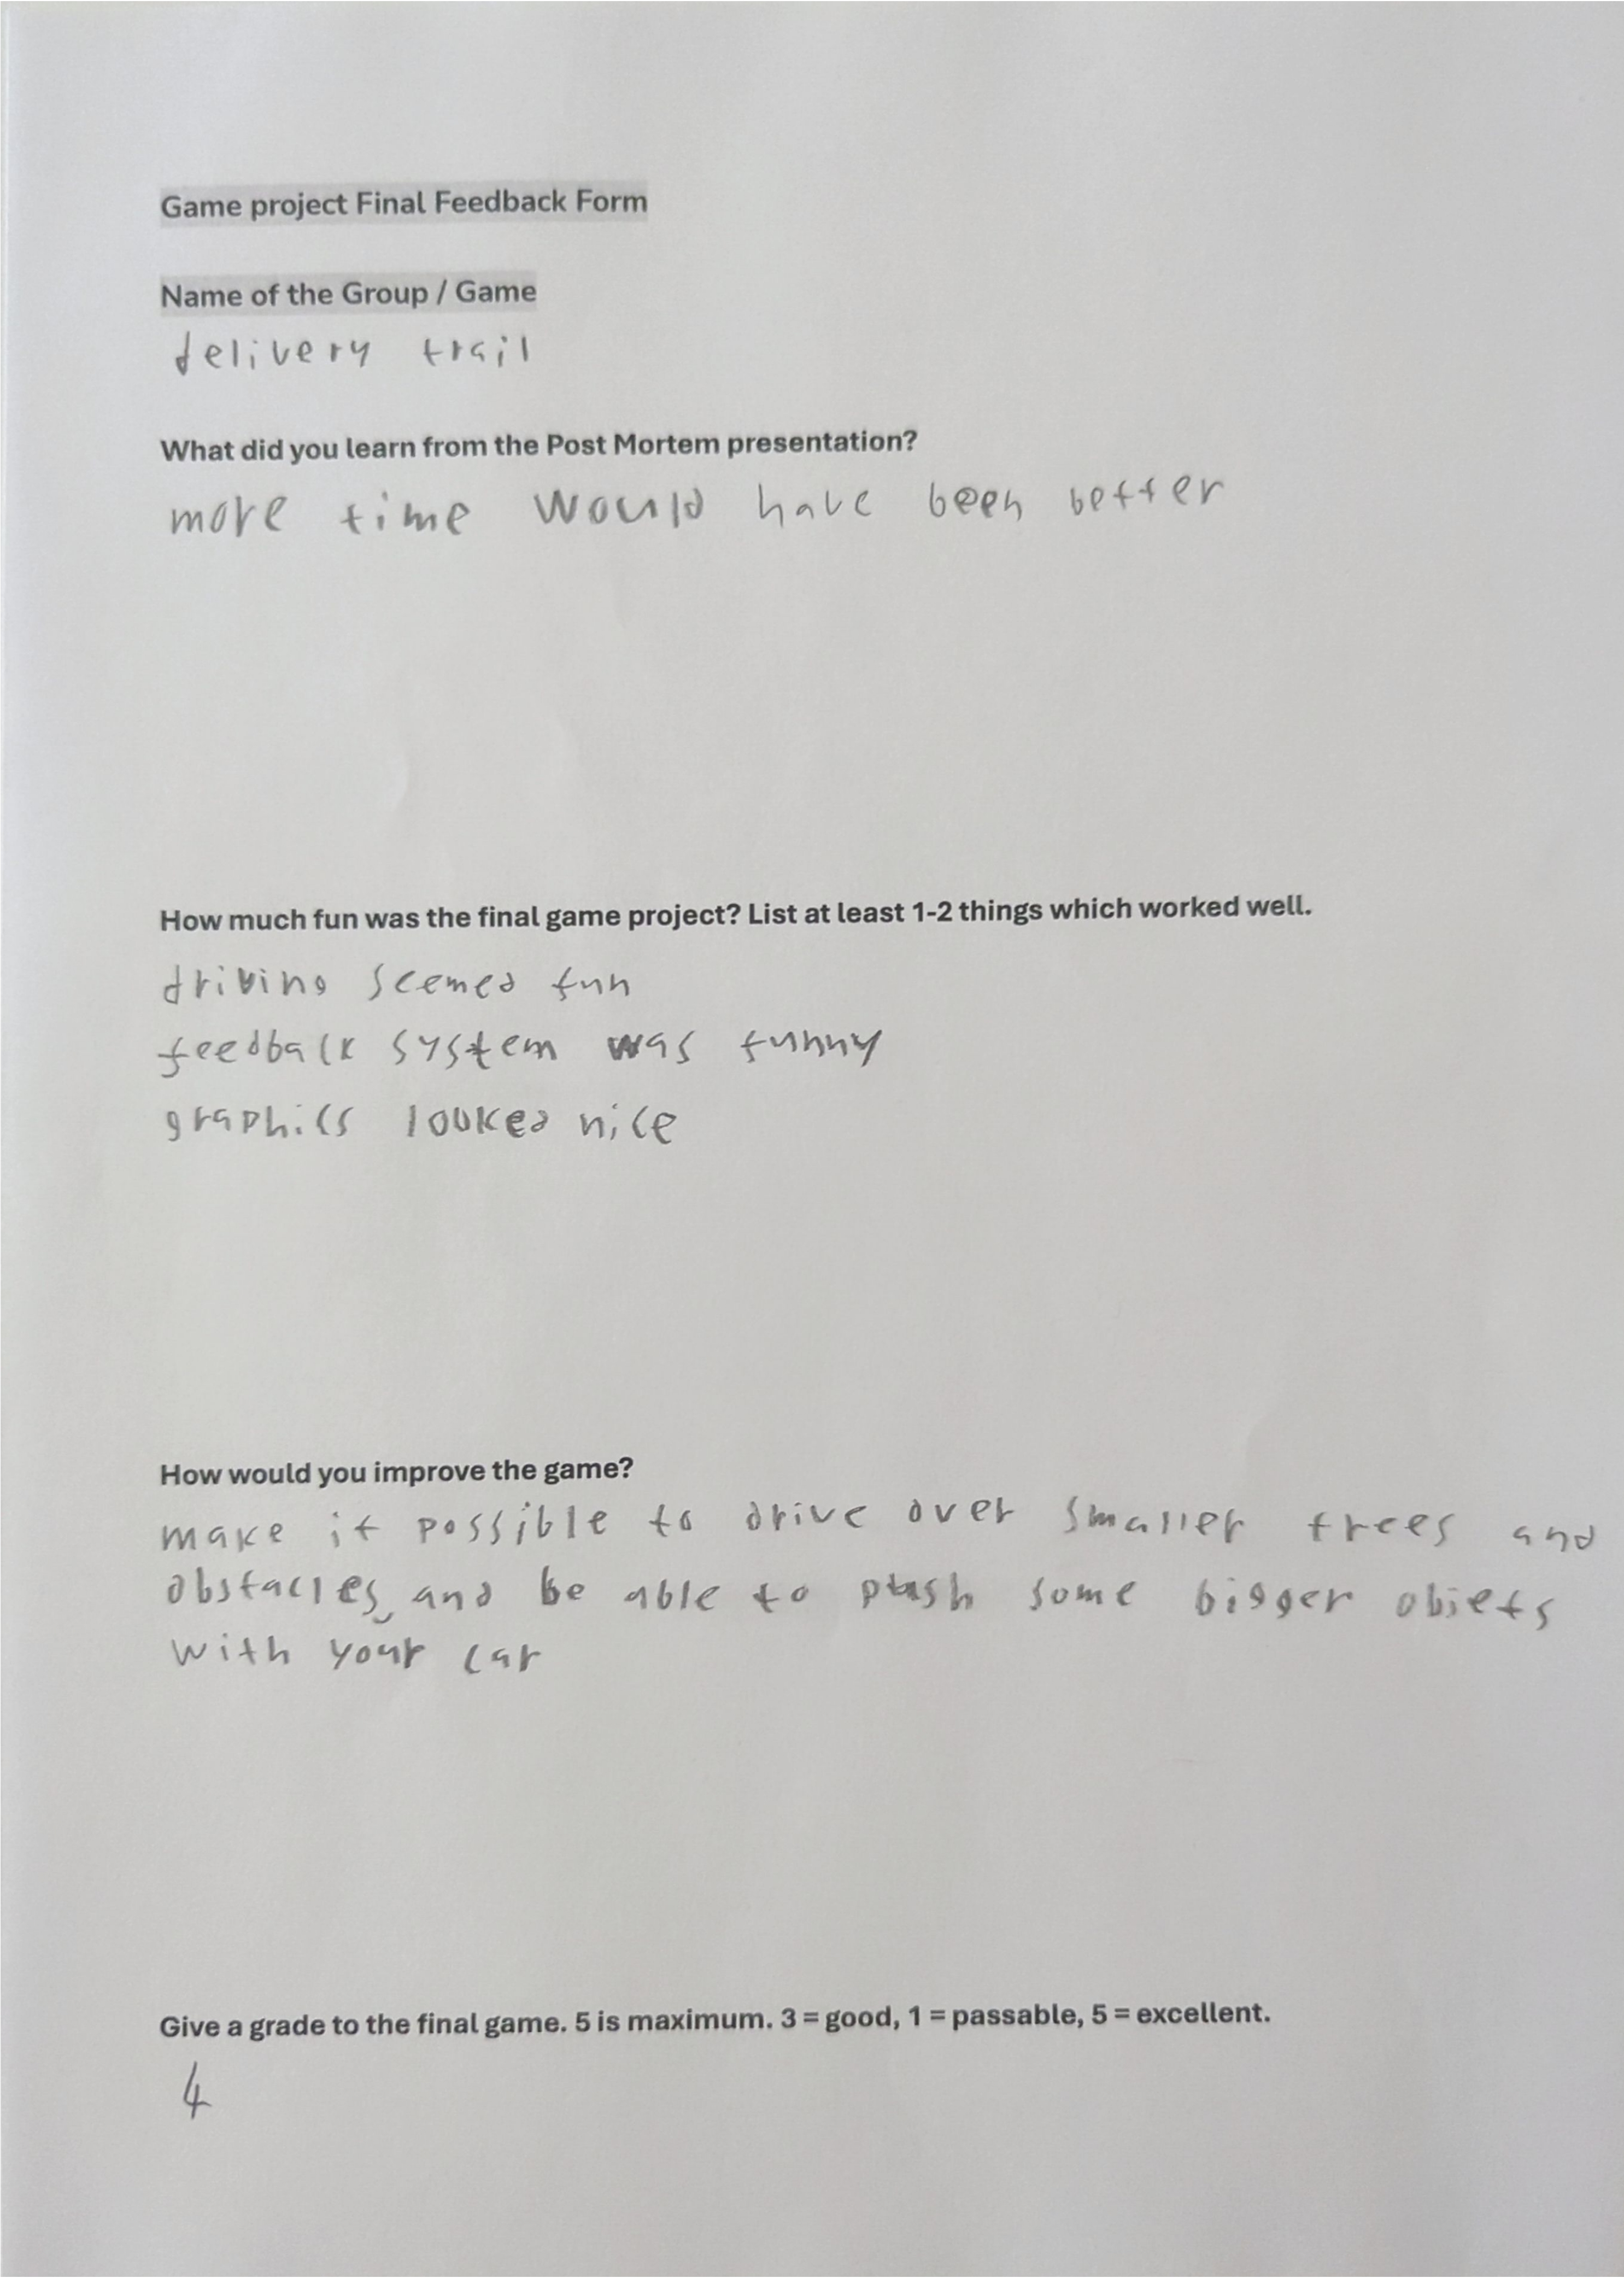 Game project Final Feedback Form
Name of the Group / Game
delivery trail
What did you learn from the Post Mortem presentation?
more time would have been better
How much fun was the final game project? List at least 1-2 things which worked well.
driving seemed fun
feedback system was funny
graphics looked nice
How would you improve the game?
make it possible to drive over smaller trees and
obstacles, and be able to push some bigger objets
with your car
Give a grade to the final game. 5 is maximum. 3 = good, 1 = passable, 5 = excellent.
4